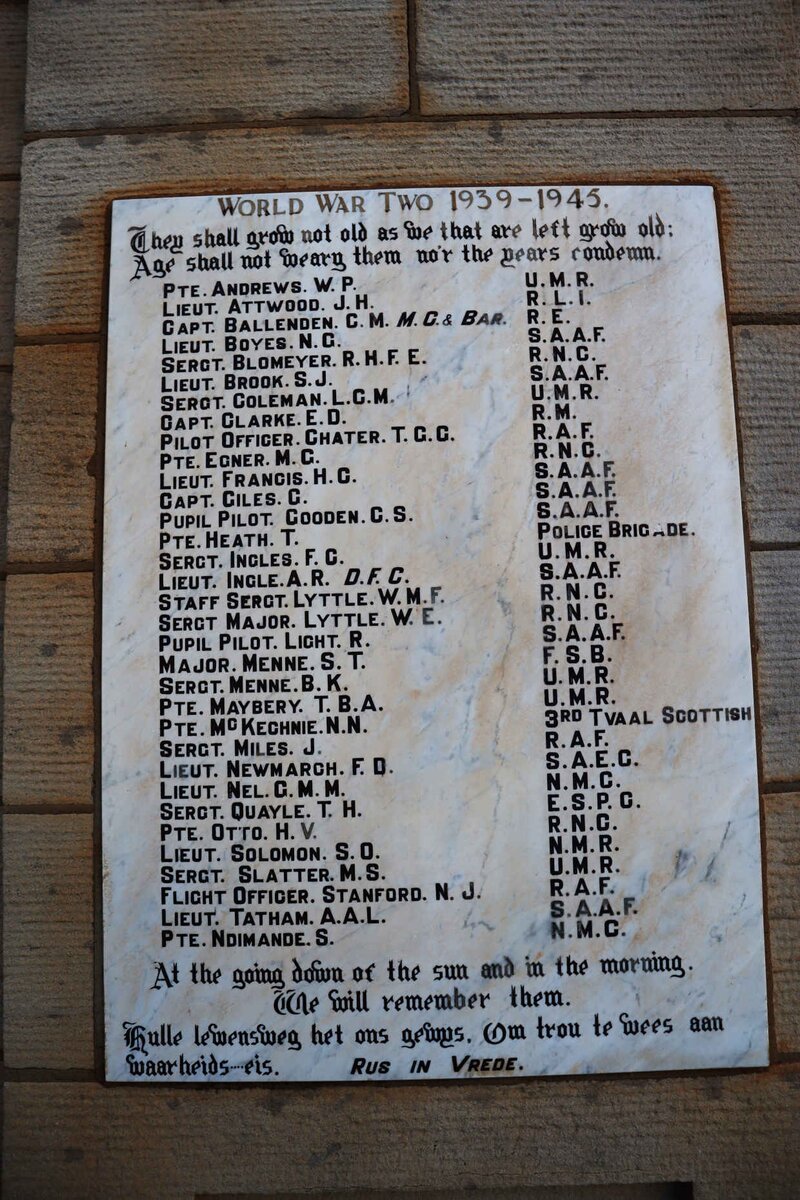 WORLD WAR TWO 1939-1945.
They shall grow not old as we that are left grow old:
Age shall not weary them nor the years condemn.
PTE. ANDREWS. W. P. U.M.R.
LIEUT. ATTWOOD. J. H. R.L.I.
CAPT. BALLENDEN. C. M. M.C. & BAR. R.E.
LIEUT. BOYES. N. C. S.A.A.F.
SERGT. BLOMEYER. R. H. F. E. R.N.C.
LIEUT. BROOK. S. J. S.A.A.F.
SERGT. COLEMAN. L. C. M. U.M.R.
CAPT. CLARKE. E. D. R.M.
PILOT OFFICER. CHATER. T. C. C. R.A.F.
PTE. EGNER. M. C. R.N.C.
LIEUT. FRANCIS. H. G. S.A.A.F.
CAPT. GILES. G. S.A.A.F.
PUPIL PILOT. GOODEN. C. S. S.A.A.F.
PTE. HEATH. T. POLICE BRIGADE.
SERGT. INGLES. F. G. U.M.R.
LIEUT. INGLE. A. R. D.F.C. S.A.A.F.
STAFF SERGT. LYTTLE. W. M. F. R.N.C.
SERGT MAJOR. LYTTLE. W. E. R.N.C.
PUPIL PILOT. LIGHT. R. S.A.A.F.
MAJOR. MENNE. S. T. F.S.B.
SERGT. MENNE. B. K. U.M.R.
PTE. MAYBERY. T. B. A. U.M.R.
PTE. McKECHNIE. N. N. 3RD TVAAL SCOTTISH
SERGT. MILES. J. R.A.F.
LIEUT. NEWMARCH. F. O. S.A.E.C.
LIEUT. NEL. G. M. M. N.M.C.
SERGT. QUAYLE. T. H. E.S.P.C.
PTE. OTTO. H. V. R.N.C.
LIEUT. SOLOMON. S. O. N.M.R.
SERGT. SLATTER. M. S. U.M.R.
FLIGHT OFFICER. STANFORD. N. J. R.A.F.
LIEUT. TATHAM. A. A. L. S.A.A.F.
PTE. NDIMANDE. S. N.M.C.
At the going down of the sun and in the morning.
We will remember them.
Hulle lewensweg het ons gewys. Om trou te wees aan
waarheids-eis. RUS IN VREDE.